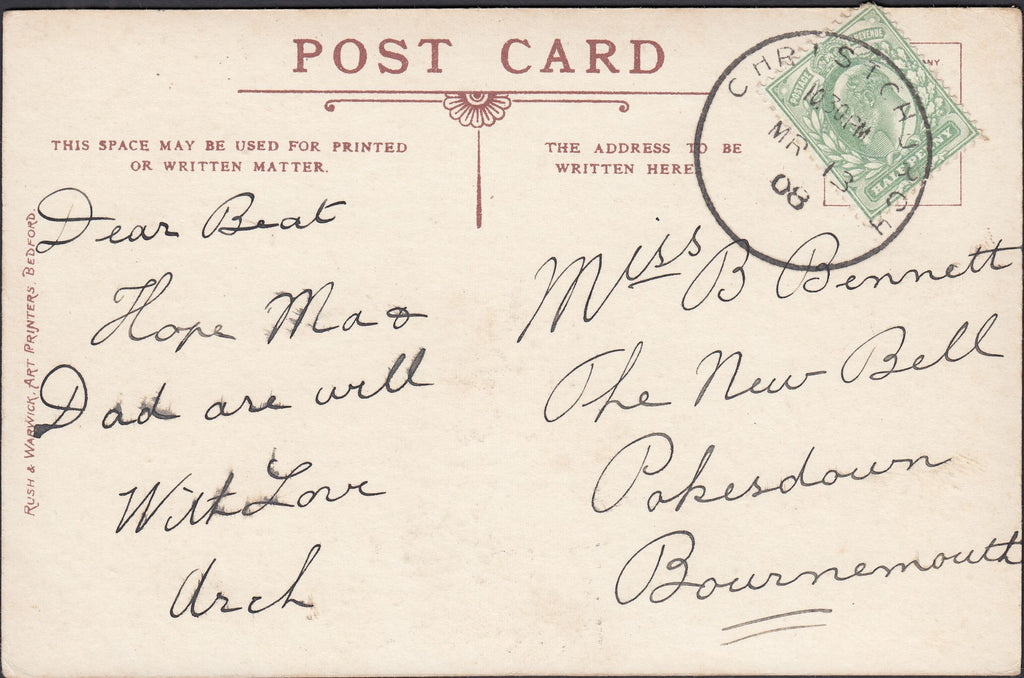 POST CARD
THIS SPACE MAY BE USED FOR PRINTED
OR WRITTEN MATTER.
THE ADDRESS TO BE
WRITTEN HERE
CHRISTCHURCH
10.30 PM
MR 13
08
POSTAGE
REVENUE
HALFPENNY
NY
Dear Beat
Hope Ma &
Dad are well
With Love
Arch
Miss B Bennett
The New Bell
Pokesdown
Bournemouth
RUSH & WARWICK, ART PRINTERS, BEDFORD.